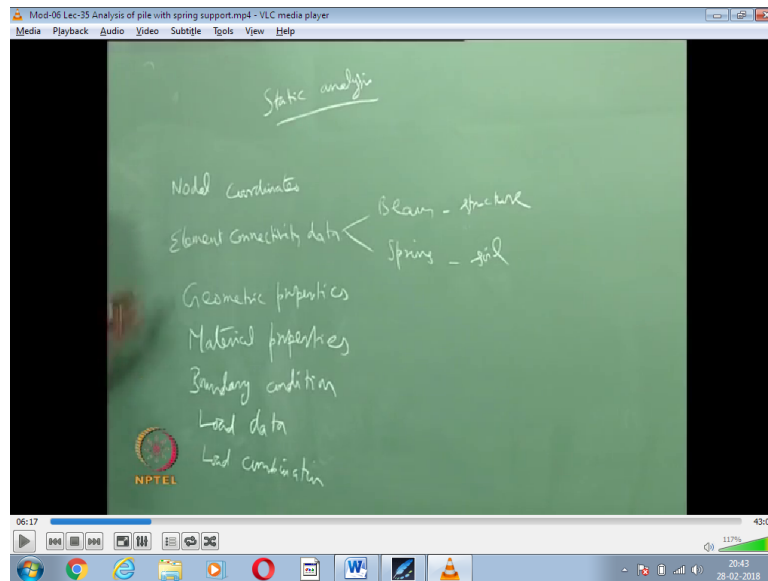 Mod-06 Lec-35 Analysis of pile with spring support.mp4 - VLC media player
Media Playback Audio Video Subtitle Tools View Help
Static analysis
Nodal Coordinates
Element Connectivity data
Beam - structure
Spring - soil
Geometric properties
Material properties
Boundary condition
Load data
Load combination
NPTEL
06:17
43:0
117%
20:43
28-02-2018